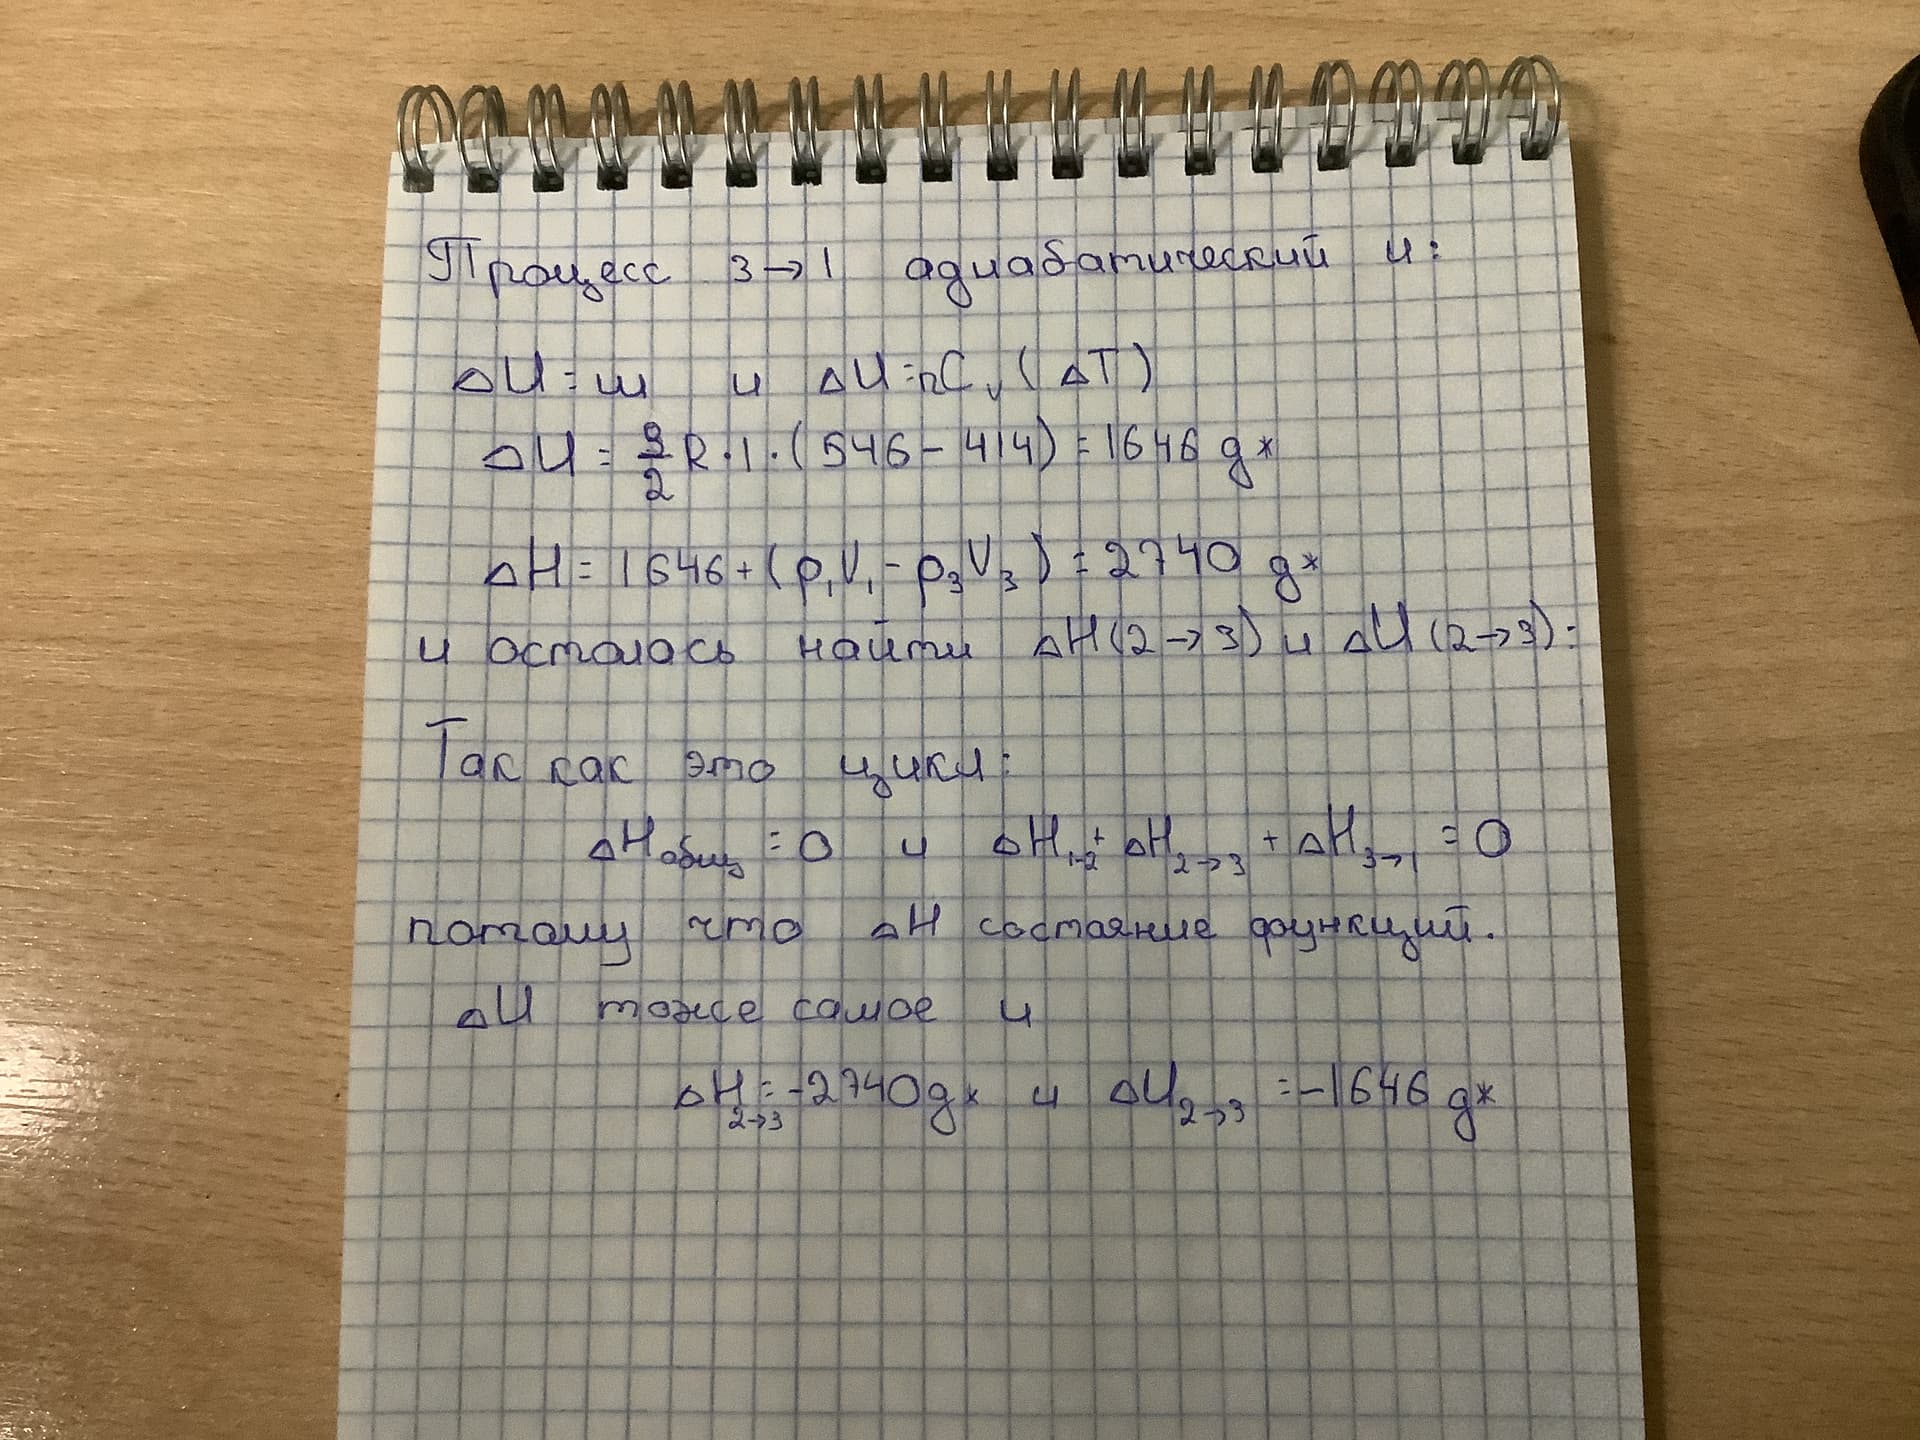 Процесс 3→1 адиабатический и:
ΔU = w и ΔU = nCᵥ(ΔT)
ΔU = 3/2 R · 1 · (546 - 414) = 1646 дж
ΔH = 1646 + (p₁V₁ - p₃V₃) = 2740 дж
и осталось найти ΔH(2→3) и ΔU(2→3):
Так как это цикл:
ΔHобщ = 0 и ΔH₁₋₂ + ΔH₂→₃ + ΔH₃→₁ = 0
потому что ΔH состояние функций.
ΔU тоже самое и
ΔH₂→₃ = -2740 дж и ΔU₂→₃ = -1646 дж